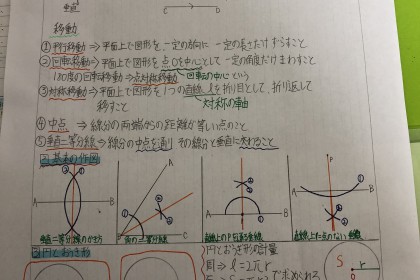 垂直
C D
移動
①平行移動⇒平面上で図形を、一定の方向に 一定の長さだけずらすこと
②回転移動⇒平面上で図形を点Oを中心として一定の角度だけまわすこと
180度の回転移動⇒点対称移動 回転の中心という
③対称移動⇒平面上で図形を1つの直線lを折り目として、折り返して
移すこと 対称の軸
④中点 ⇒線分の両端からの距離が等しい点のこと
⑤垂直二等分線⇒線分の中点を通り その線分と垂直に交わること
基本の作図
A B
A
B
A B
P
A B
垂直二等分線のかき方
角の二等分線
円とおうぎ形
円とおうぎ形の計量
l=2πr
S r